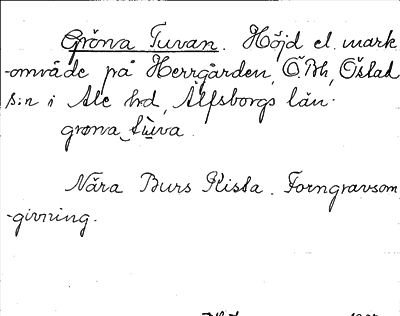 Gröna Tuvan. Höjd el. mark
-område på Herrgården, Ö. Bh, Östad
s:n i Ale hd, Älfsborgs län.
grona tùva.
Nära Burs Kista. Forngravsom
-givning.